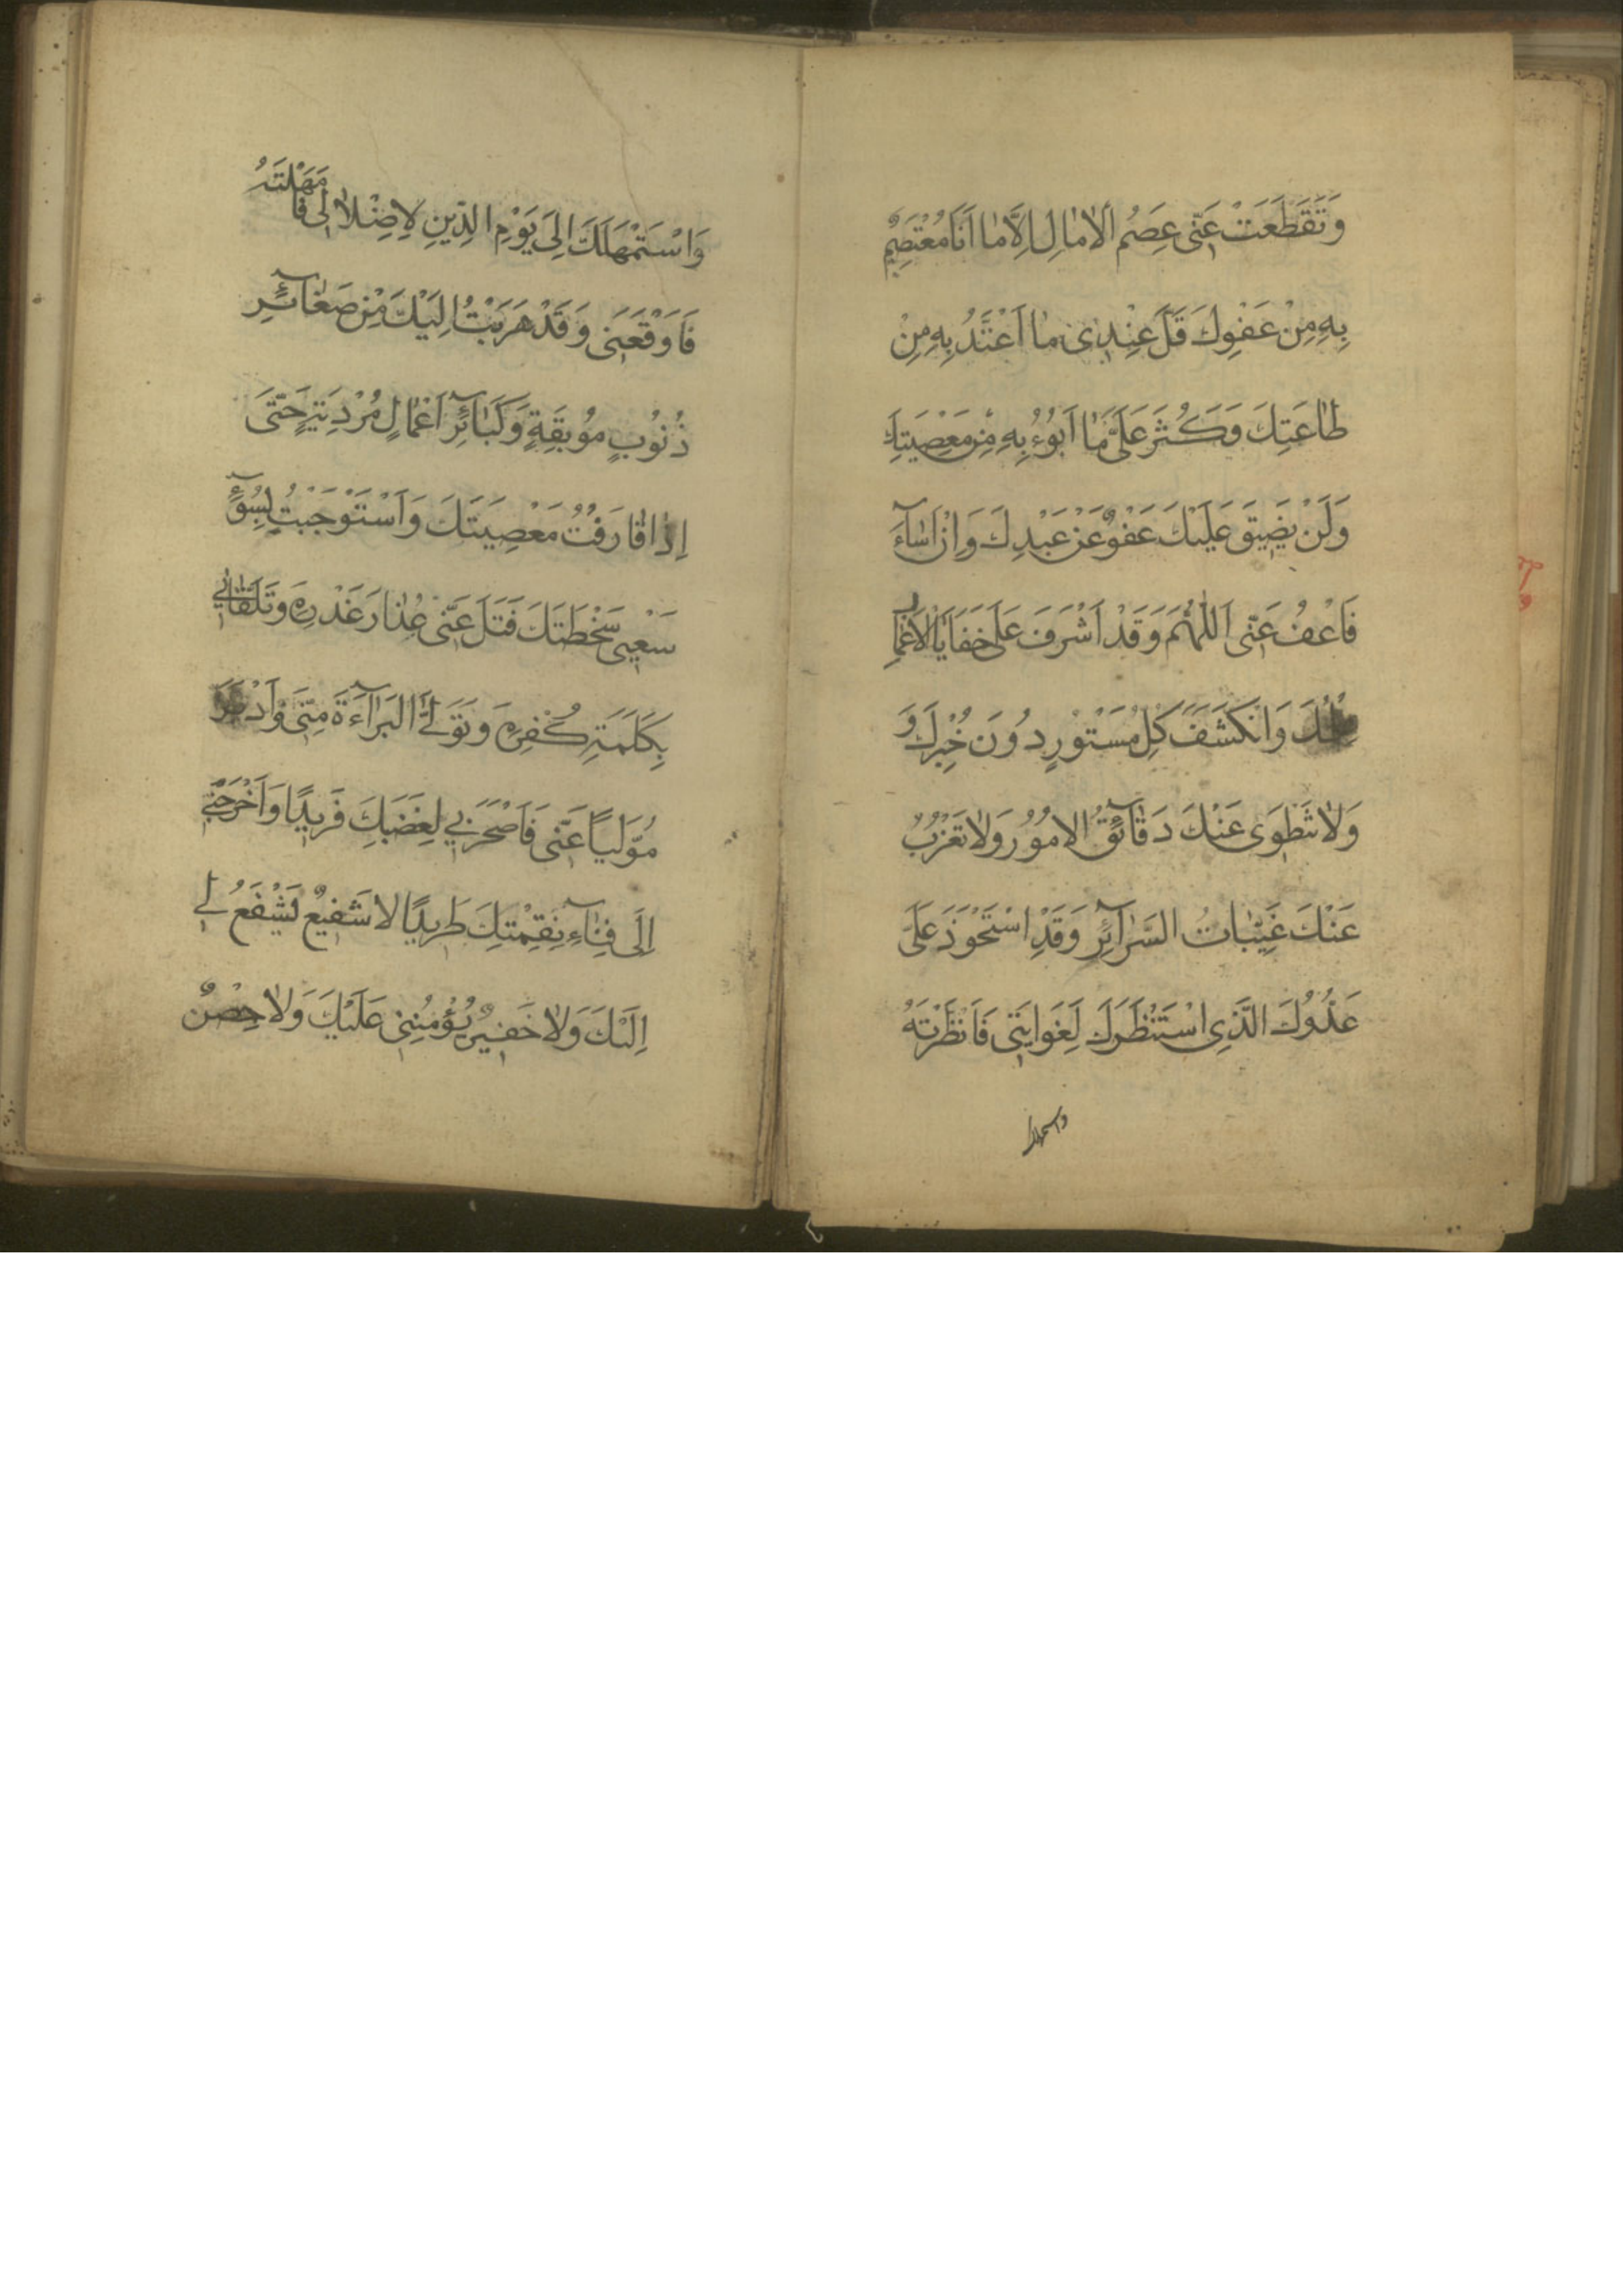 وَتَقَطَّعَتْ عَنّى عِصَمُ الْاٰمٰالِ اِلَّا مٰا اَنَا مُعْتَصِمٌ
بِهِ مِنْ عَفْوِكَ قَلَّ عِنْدِى مٰا اَعْتَدُّ بِهِ مِنْ
طٰاعَتِكَ وَكَثُرَ عَلَىَّ مٰا اَبُوُءُ بِهِ مِنْ مَعْصِيَتِكَ
وَلَنْ يَضيقَ عَلَيْكَ عَفْوٌ عَنْ عَبْدِكَ وَاِنْ اَسٰآءَ
فَاعْفُ عَنّى اَللّٰهُمَّ وَقَدْ اَشْرَفَ عَلٰى خَفَايَا الْاَعْمٰالِ
وَانْكَشَفَ كُلُّ مَسْتُورٍ دُونَ خُبْرِكَ وَ
وَلاٰ تَنْطَوى عَنْكَ دَقٰآئِقُ الاُمُوُرِ وَلاٰ تَعْزُبُ
عَنْكَ غَيِّبٰاتُ السَّرٰآئِرِ وَقَدِ اسْتَحْوَذَ عَلَىَّ
عَدُوُّكَ الَّذِى اسْتَنْظَرَكَ لِغَوايَتى فَاَنْظَرْتَهُ
وَاسْتَمْهَلَكَ اِلىٰ يَوْمِ الدّينِ لِاِضْلاٰلى فَاَمْهَلْتَهُ
فَاَوْقَعَنى وَقَدْ هَرَبْتُ اِلَيْكَ مِنْ صَغٰآئِرِ
ذُنُوُبٍ مُوُبِقَةٍ وَكَبٰآئِرِ اَعْمٰالٍ مُرْدِيَةٍ حَتّىٰ
اِذٰا قٰارَفْتُ مَعْصِيَتَكَ وَاسْتَوْجَبْتُ بِسُوٓءِ
سَعْيى سَخْطَتَكَ فَتَلَ عَنّى عِذٰارَ غَدْرِهِ وَتَلَقّٰانى
بِكَلِمَةِ كُفْرِهِ وَتَوَلَّى الْبَرٰآءَةَ مِنّى وَاَدْبَرَ
مُوَلِّياً عَنّى فَاَصْحَرَنى لِغَضَبِكَ فَريدًا وَاَخْرَجَنى
اِلٰى فِنٰآءِ نِقْمَتِكَ طَريدًا لا شَفيعٌ يَشْفَعُ لى
اِلَيْكَ وَلاٰ خَفيرٌ يُؤْمِنُنى عَلَيْكَ وَلاٰ حِصْنٌ